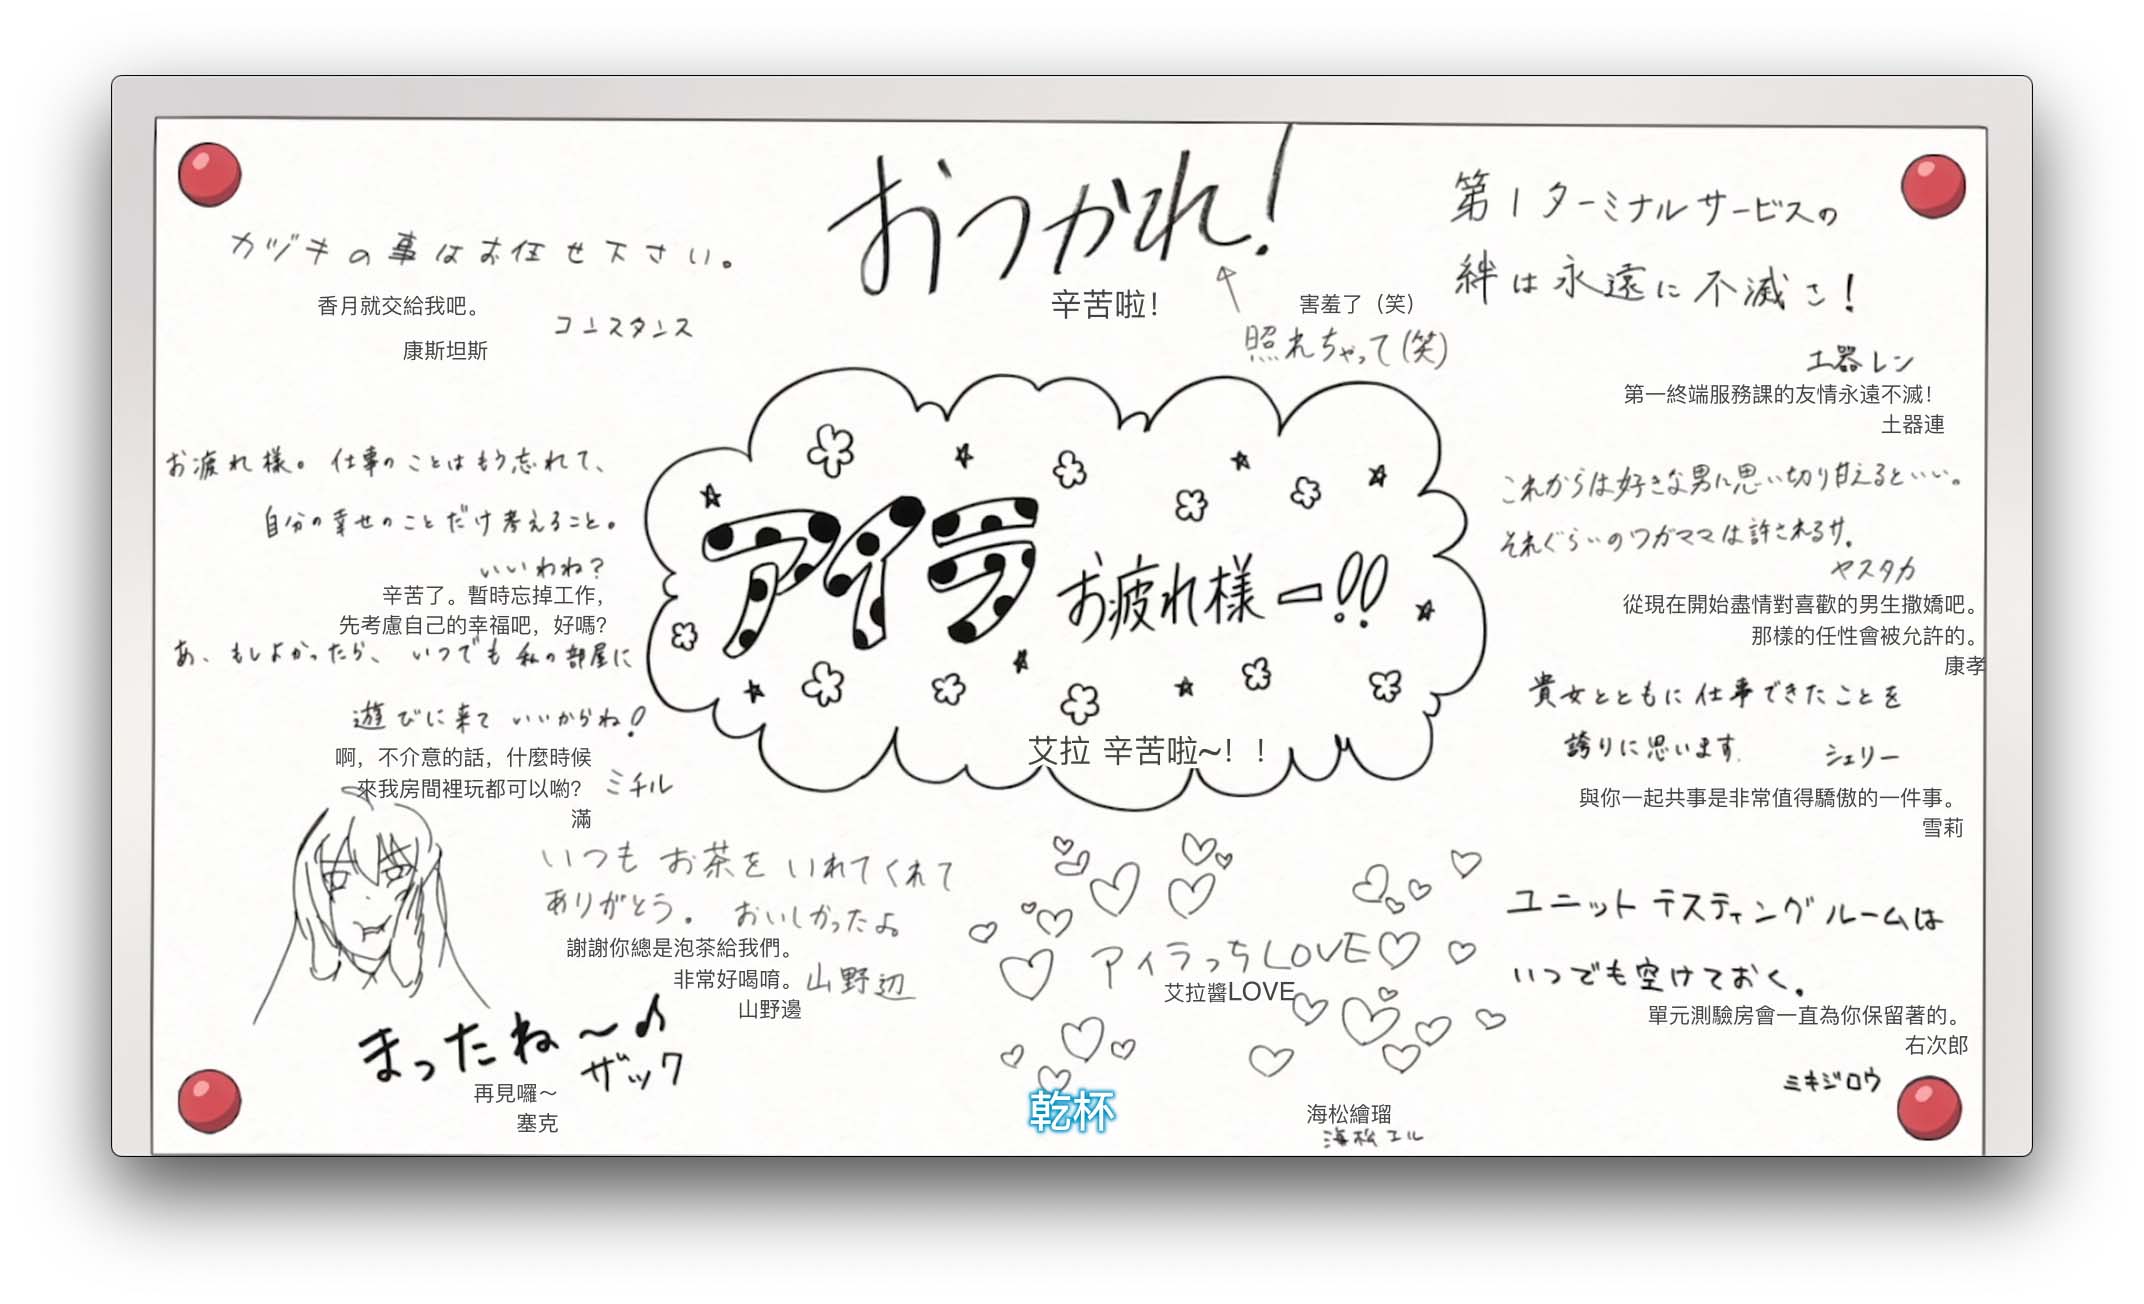 おつかれ!
辛苦啦!
害羞了（笑）
照れちゃって(笑)
カヅキの事はお任せ下さい。
香月就交給我吧。
コンスタンス
康斯坦斯
第1ターミナルサービスの
絆は永遠に不滅さ!
土器レン
第一終端服務課的友情永遠不滅!
土器連
お疲れ様。仕事のことはもう忘れて、
自分の幸せのことだけ考えること。
いいわね?
辛苦了。暫時忘掉工作,
先考慮自己的幸福吧，好嗎?
あ、もしよかったら、いつでも私の部屋に
遊びに来ていいからね!
啊，不介意的話，什麼時候
來我房間裡玩都可以喲?
ミチル
滿
アイラ
お疲れ様ー!!
艾拉 辛苦啦~! !
これからは好きな男に思い切り甘えるといい。
それぐらいのワガママは許されるサ。
ヤスタカ
從現在開始盡情對喜歡的男生撒嬌吧。
那樣的任性會被允許的。
康孝
貴女とともに仕事できたことを
誇りに思います.
シェリー
與你一起共事是非常值得驕傲的一件事。
雪莉
いつもお茶をいれてくれて
ありがとう。おいしかったよ。
謝謝你總是泡茶給我們。
非常好喝唷。
山野辺
山野邊
まったね～♪
ザック
再見囉～
塞克
アイラっちLOVE♡
艾拉醬LOVE
海松繪瑠
海松エル
ユニットテスティングルームは
いつでも空けておく。
單元測驗房會一直為你保留著的。
右次郎
ミキジロウ
乾杯